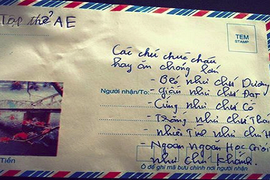 Tập thể AE
TEM
STAMP
Các chú chúc cháu
hay ăn chóng lớn
Người nhận/To:
- Béo như chú Dương
- Giàu như chú Đạt
- Cứng như chú Có
- Trông như chú
- Nhiều như chú
- Ngoan ngoan Học Giỏi
như chú Khánh.
Tiến
Ô để ghi mã bưu chính nơi nhận